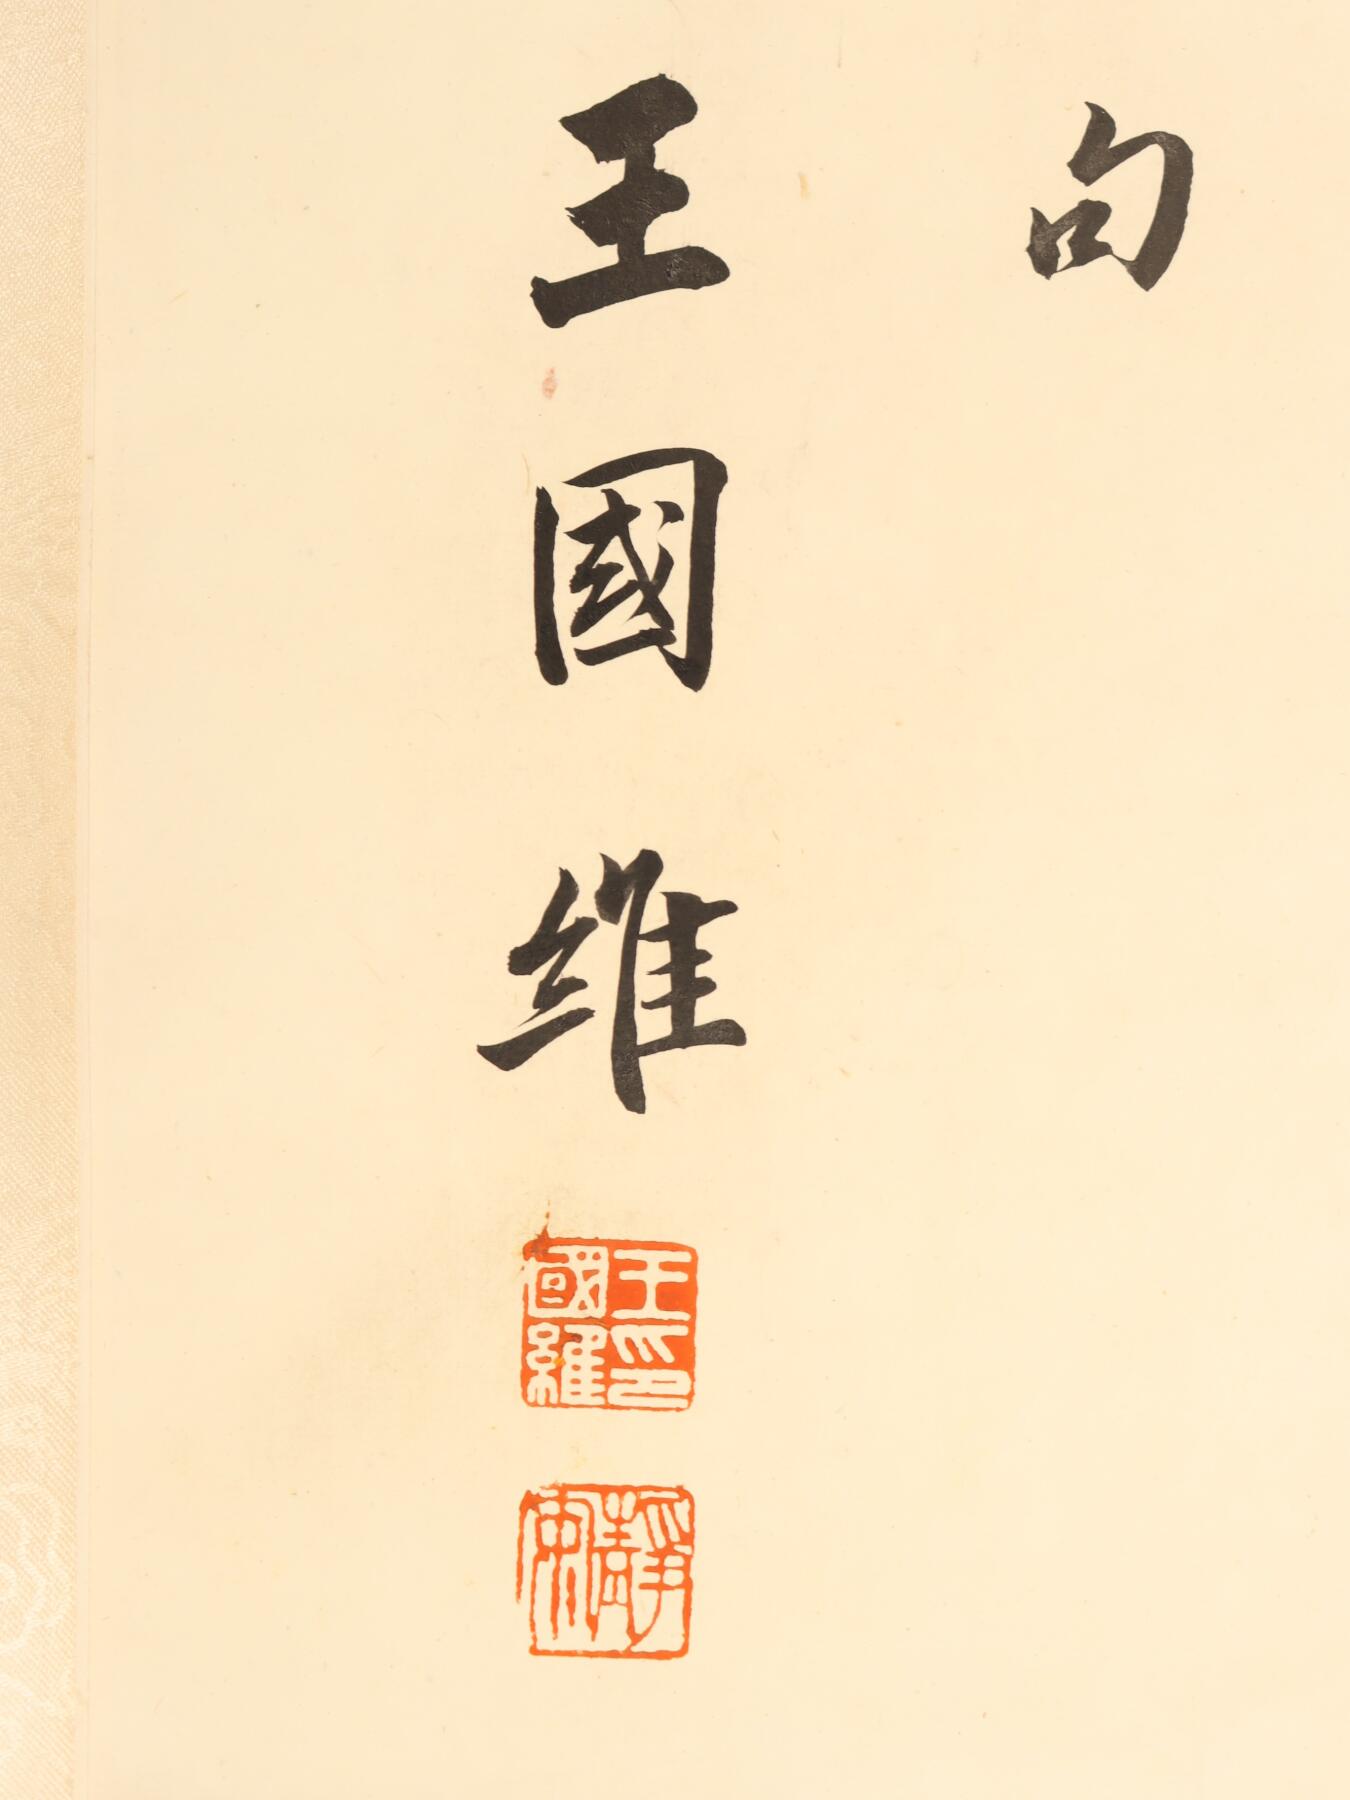 句
王國維
王國維印
靜安